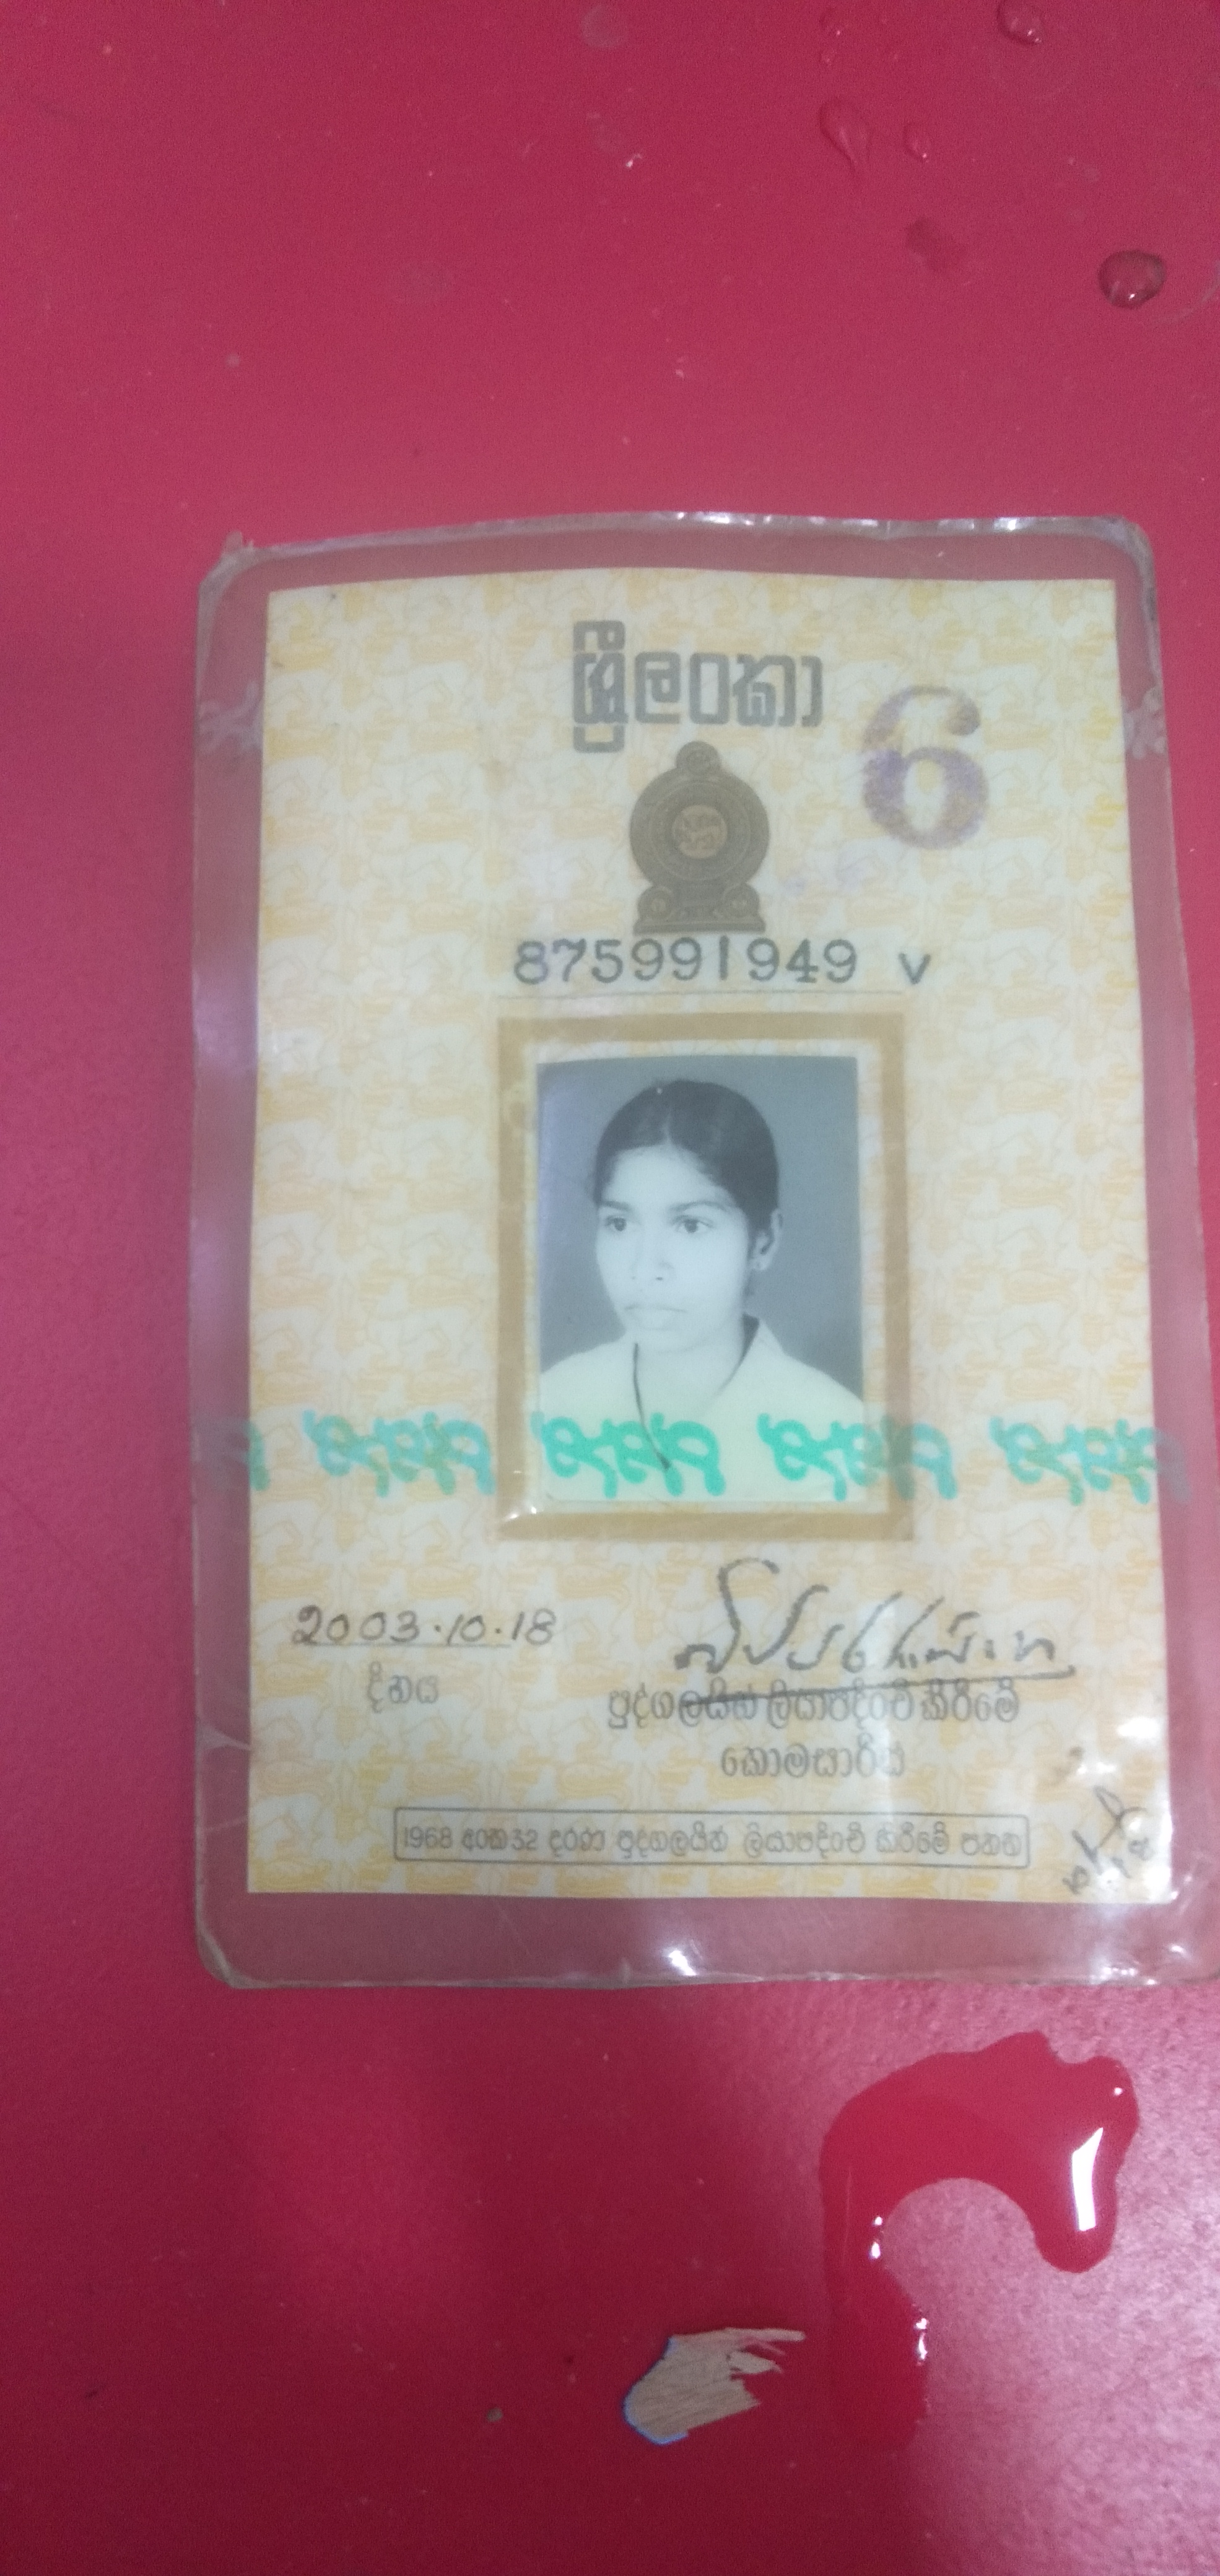 ශ්‍රී ලංකා
6
875991949 V
2003.10.18
දිනය
පුද්ගලයින් ලියාපදිංචි කිරීමේ
කොමසාරිස්
1968 අංක 32 දරණ පුද්ගලයින් ලියාපදිංචි කිරීමේ පනත